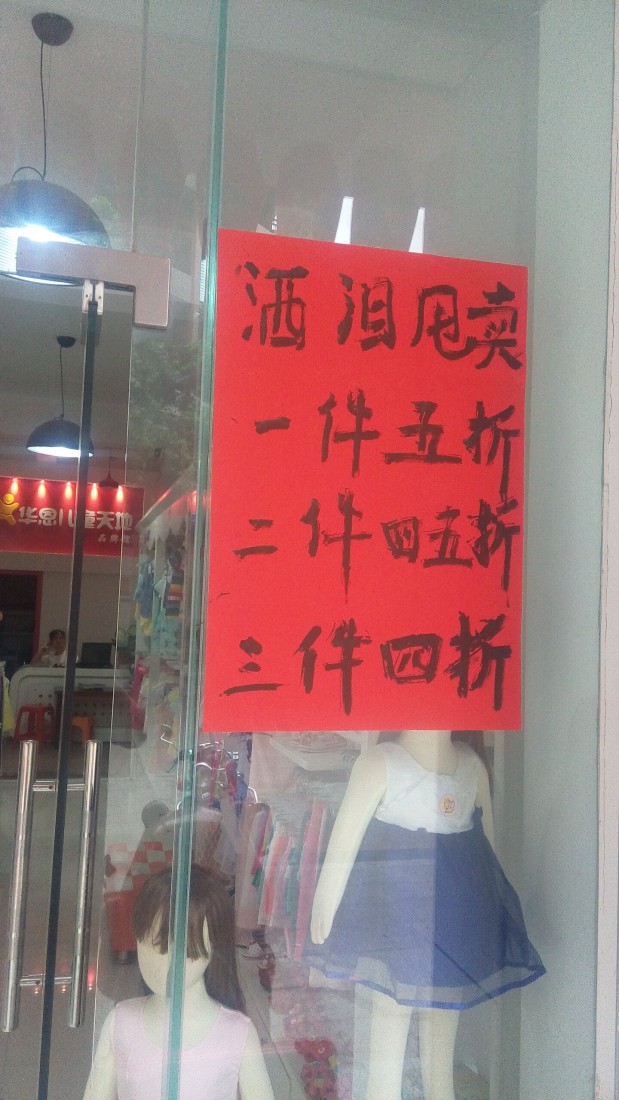 洒泪甩卖
一件五折
二件四五折
三件四折
华恩儿童天地
品牌馆